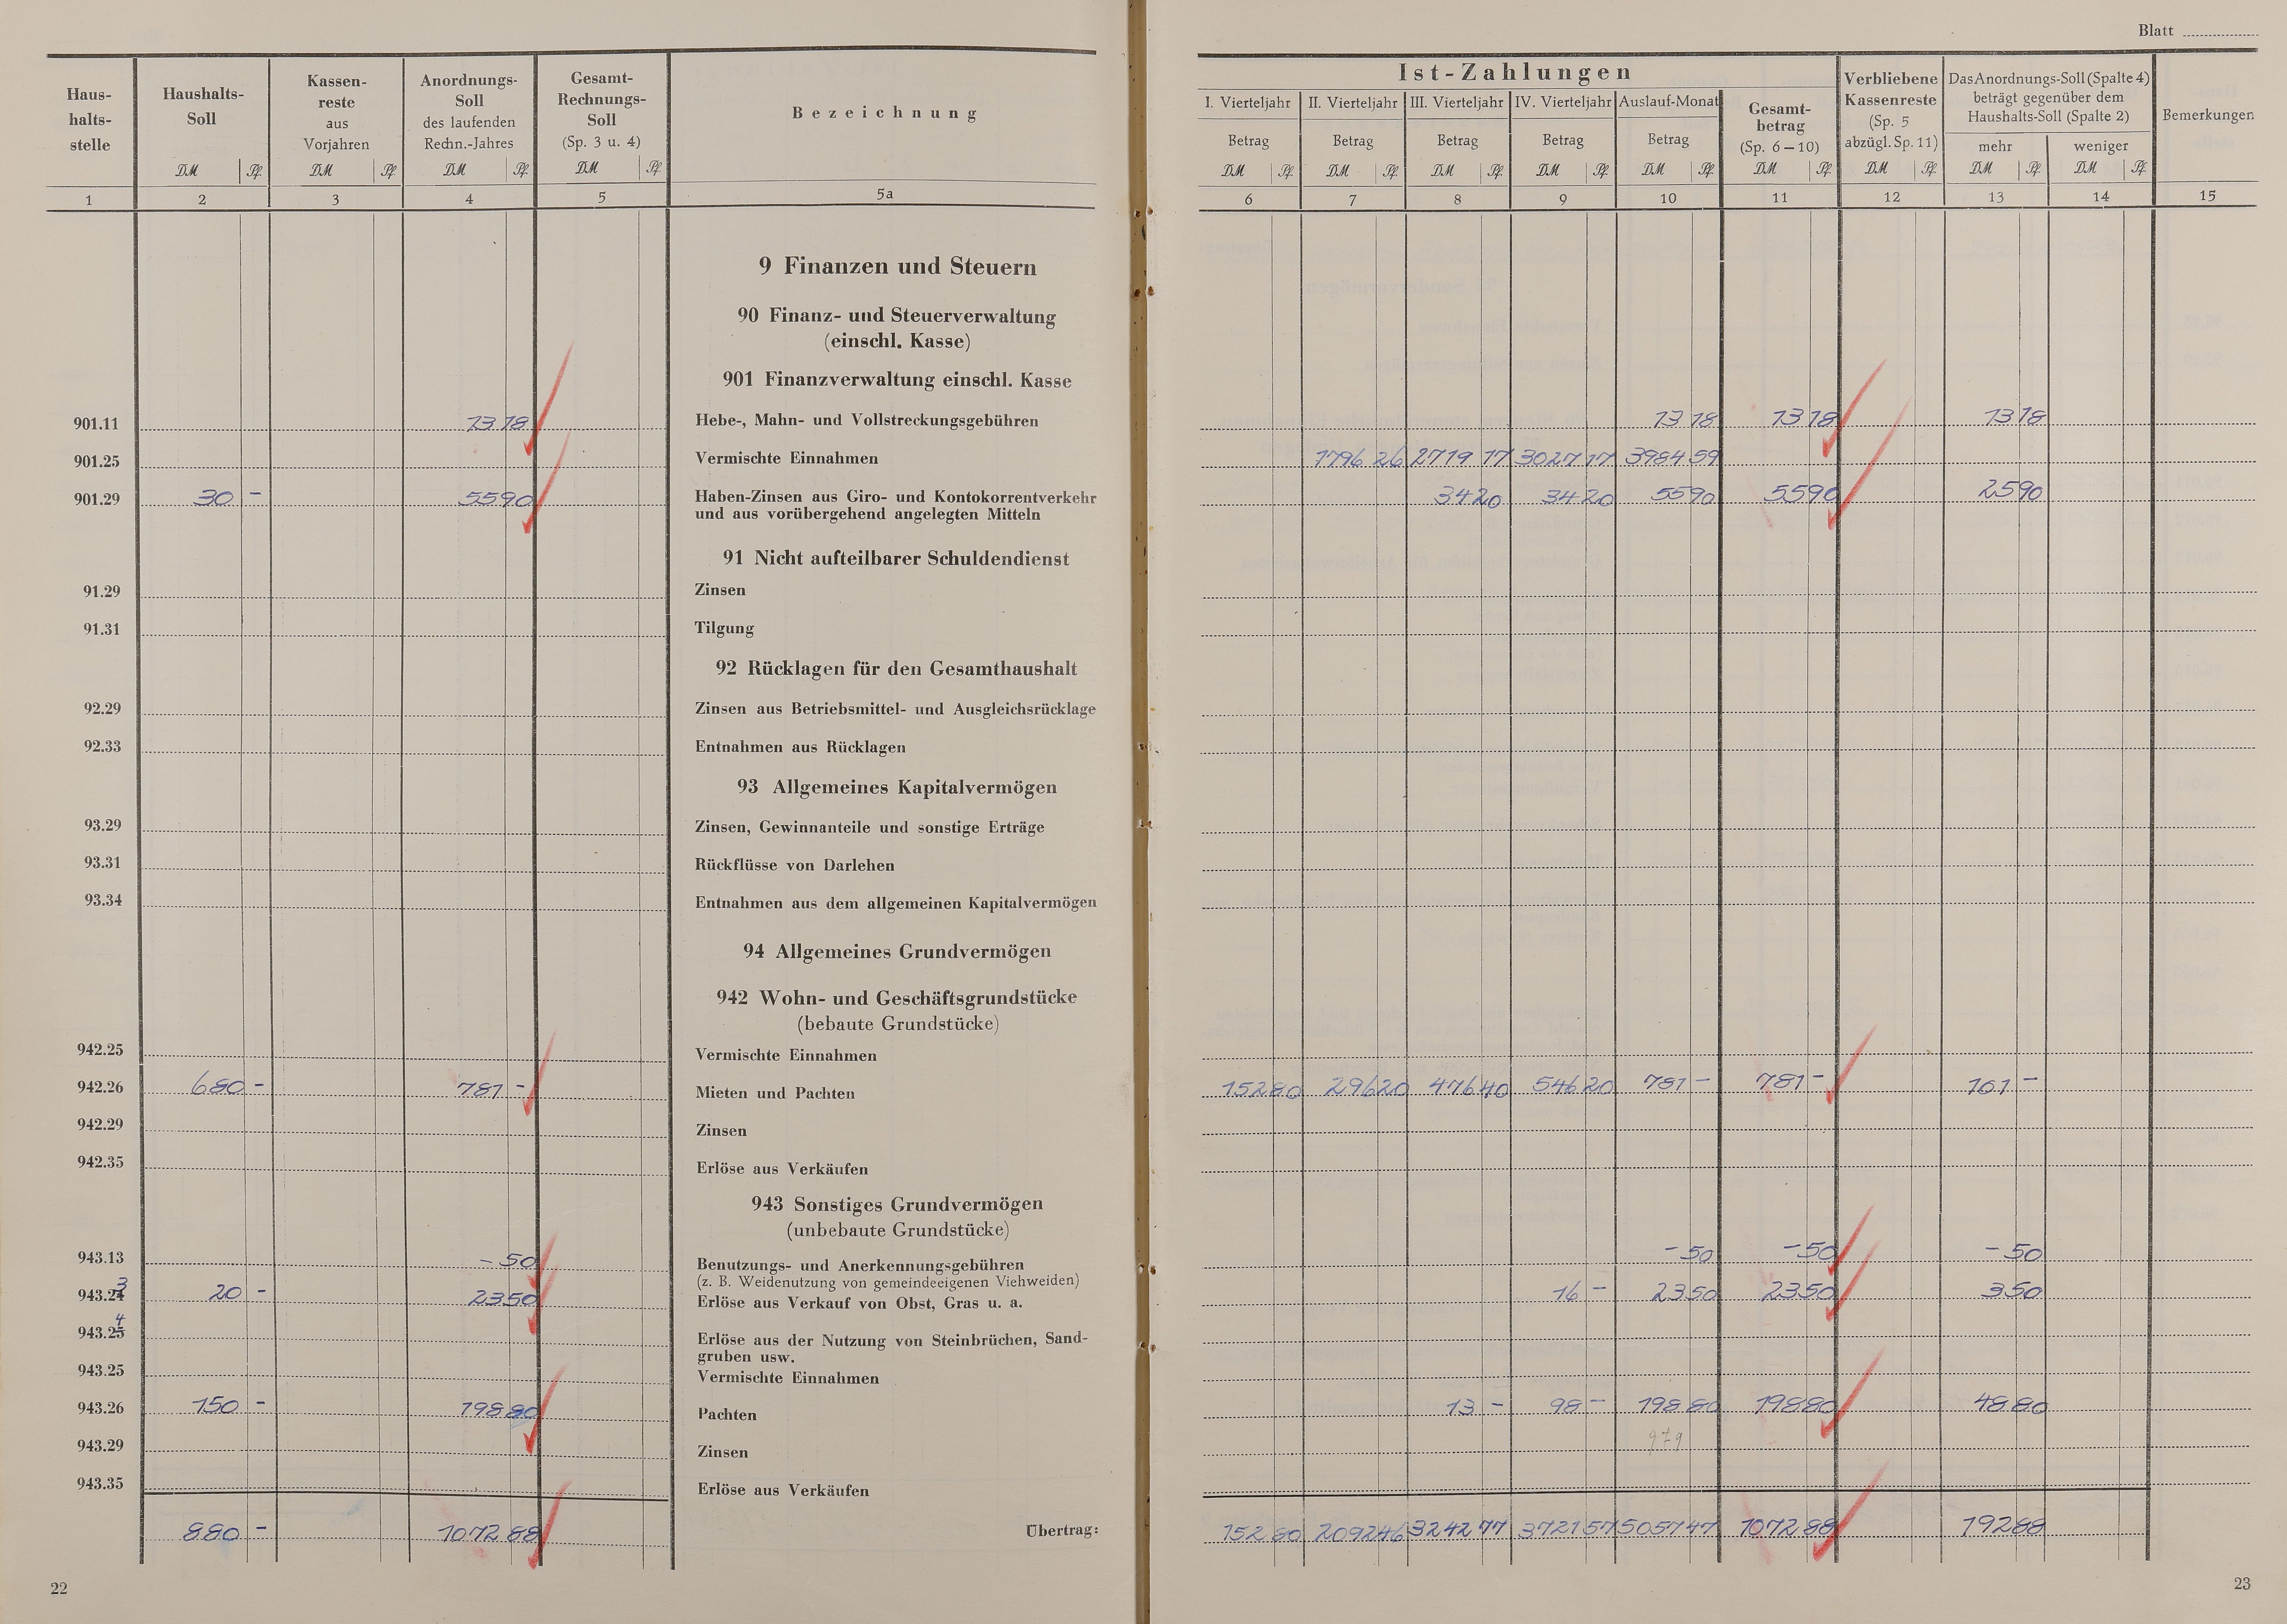 Blatt
Haus-
halts-
stelle
Haushalts-
Soll
DM Pf.
Kassen-
reste
aus
Vorjahren
DM Pf.
Anordnungs-
Soll
des laufenden
Rechn.-Jahres
DM Pf.
Gesamt-
Rechnungs-
Soll
(Sp. 3 u. 4)
DM Pf.
Bezeichnung
Ist-Zahlungen
I. Vierteljahr II. Vierteljahr III. Vierteljahr IV. Vierteljahr Auslauf-Monat
Betrag Betrag Betrag Betrag Betrag
DM Pf. DM Pf. DM Pf. DM Pf. DM Pf.
Gesamt-
betrag
(Sp. 6–10)
DM Pf.
Verbliebene
Kassenreste
(Sp. 5
abzügl. Sp. 11)
DM Pf.
Das Anordnungs-Soll (Spalte 4)
beträgt gegenüber dem
Haushalts-Soll (Spalte 2)
mehr weniger
DM Pf. DM Pf.
Bemerkungen
1 2 3 4 5 5a 6 7 8 9 10 11 12 13 14 15
9 Finanzen und Steuern
90 Finanz- und Steuerverwaltung
(einschl. Kasse)
901 Finanzverwaltung einschl. Kasse
901.11 13 18 Hebe-, Mahn- und Vollstreckungsgebühren 13 18 13 18 13 18
901.25 Vermischte Einnahmen 1796 26 2719 17 3027 17 3984 59
901.29 30 – 55 90 Haben-Zinsen aus Giro- und Kontokorrentverkehr 34 20 34 20 55 90 55 90 25 90
und aus vorübergehend angelegten Mitteln
91 Nicht aufteilbarer Schuldendienst
91.29 Zinsen
91.31 Tilgung
92 Rücklagen für den Gesamthaushalt
92.29 Zinsen aus Betriebsmittel- und Ausgleichsrücklage
92.33 Entnahmen aus Rücklagen
93 Allgemeines Kapitalvermögen
93.29 Zinsen, Gewinnanteile und sonstige Erträge
93.31 Rückflüsse von Darlehen
93.34 Entnahmen aus dem allgemeinen Kapitalvermögen
94 Allgemeines Grundvermögen
942 Wohn- und Geschäftsgrundstücke
(bebaute Grundstücke)
942.25 Vermischte Einnahmen
942.26 680 – 781 – Mieten und Pachten 152 80 296 20 476 40 546 20 781 – 781 – 101 –
942.29 Zinsen
942.35 Erlöse aus Verkäufen
943 Sonstiges Grundvermögen
(unbebaute Grundstücke)
943.13 – 50 Benutzungs- und Anerkennungsgebühren – 50 – 50 – 50
(z. B. Weidenutzung von gemeindeeigenen Viehweiden)
3
943.24 20 – 23 50 Erlöse aus Verkauf von Obst, Gras u. a. 16 – 23 50 23 50 3 50
4
943.25 Erlöse aus der Nutzung von Steinbrüchen, Sand-
gruben usw.
943.25 Vermischte Einnahmen
943.26 150 – 198 80 Pachten 13 – 98 – 198 80 198 80 48 80
943.29 Zinsen 979
943.35 Erlöse aus Verkäufen
880 – 1072 88 Übertrag: 152 80 2092 46 3242 77 3721 57 5057 47 1072 88 192 88
22
23